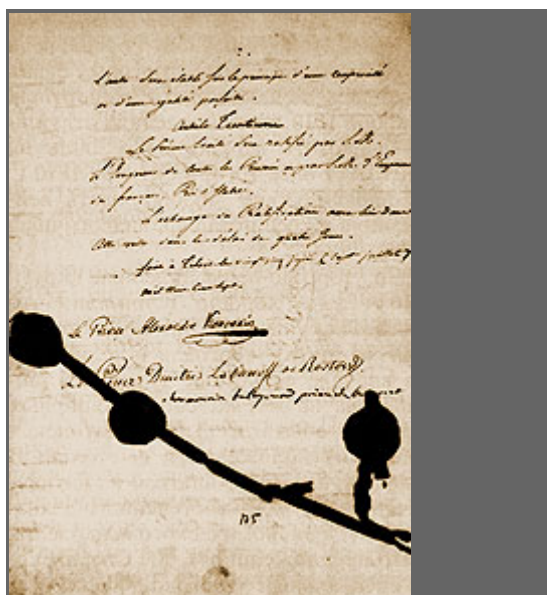 l'autre sera établi sur le principe d'une réciprocité
et d'une égalité parfaite.
Article Trentième
Le Présent traité sera ratifié par S. M.
L'Empereur de toutes les Russies et par S. M. l'Empereur
des français, Roi d'Italie.
L'échange des Ratifications aura lieu dans
cette ville dans le délai de quatre jours.
fait à Tilsit le
mil huit cent sept.
Le Prince Alexandre Kourakin
Le Prince Dmitry Labanoff de Rostoff
prince de Benevent
175